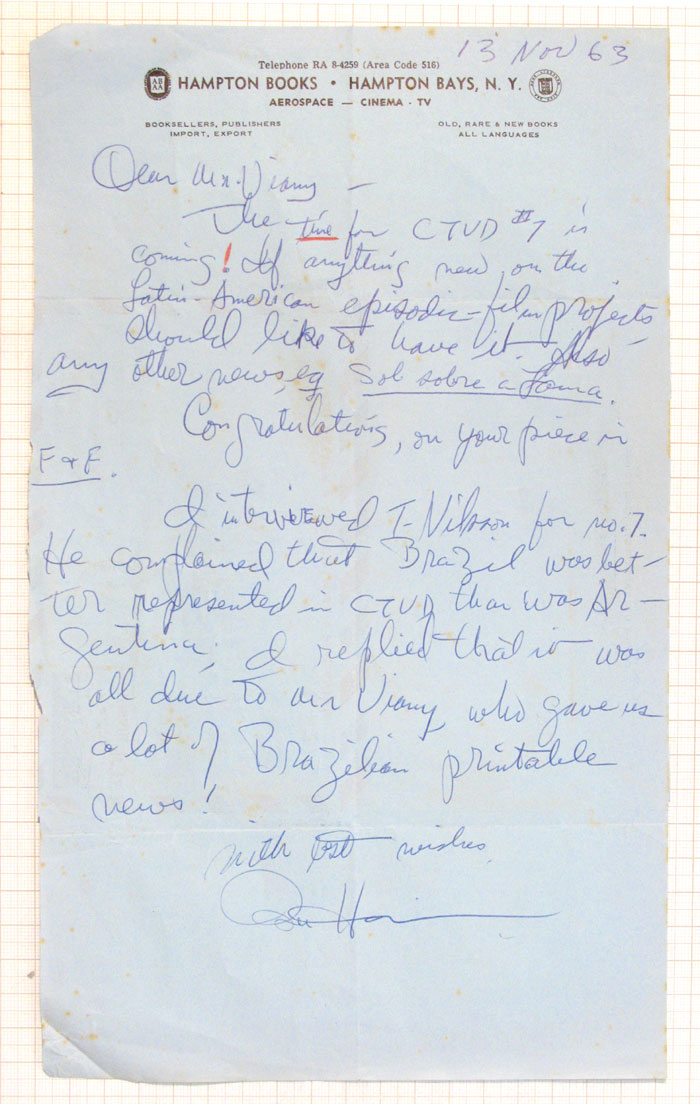 13 NOV 63
Telephone RA 8-4259 (Area Code 516)
HAMPTON BOOKS • HAMPTON BAYS, N. Y.
AEROSPACE — CINEMA · TV
BOOKSELLERS, PUBLISHERS
IMPORT, EXPORT
OLD, RARE & NEW BOOKS
ALL LANGUAGES
Dear Mr. Viany —
The time for CTVD #7 is
coming! If anything new on the
Latin-American episodic-film projects
should like to have it. Also
any other news, eg Sol sobre a Lama.
Congratulations, on your piece in
F & F.
I interviewed T-Nilsson for no. 7.
He complained that Brazil was bet-
ter represented in CTVD than was Ar-
gentina. I replied that it was
all due to Mr Viany who gave us
a lot of Brazilian printable
news!
With best wishes